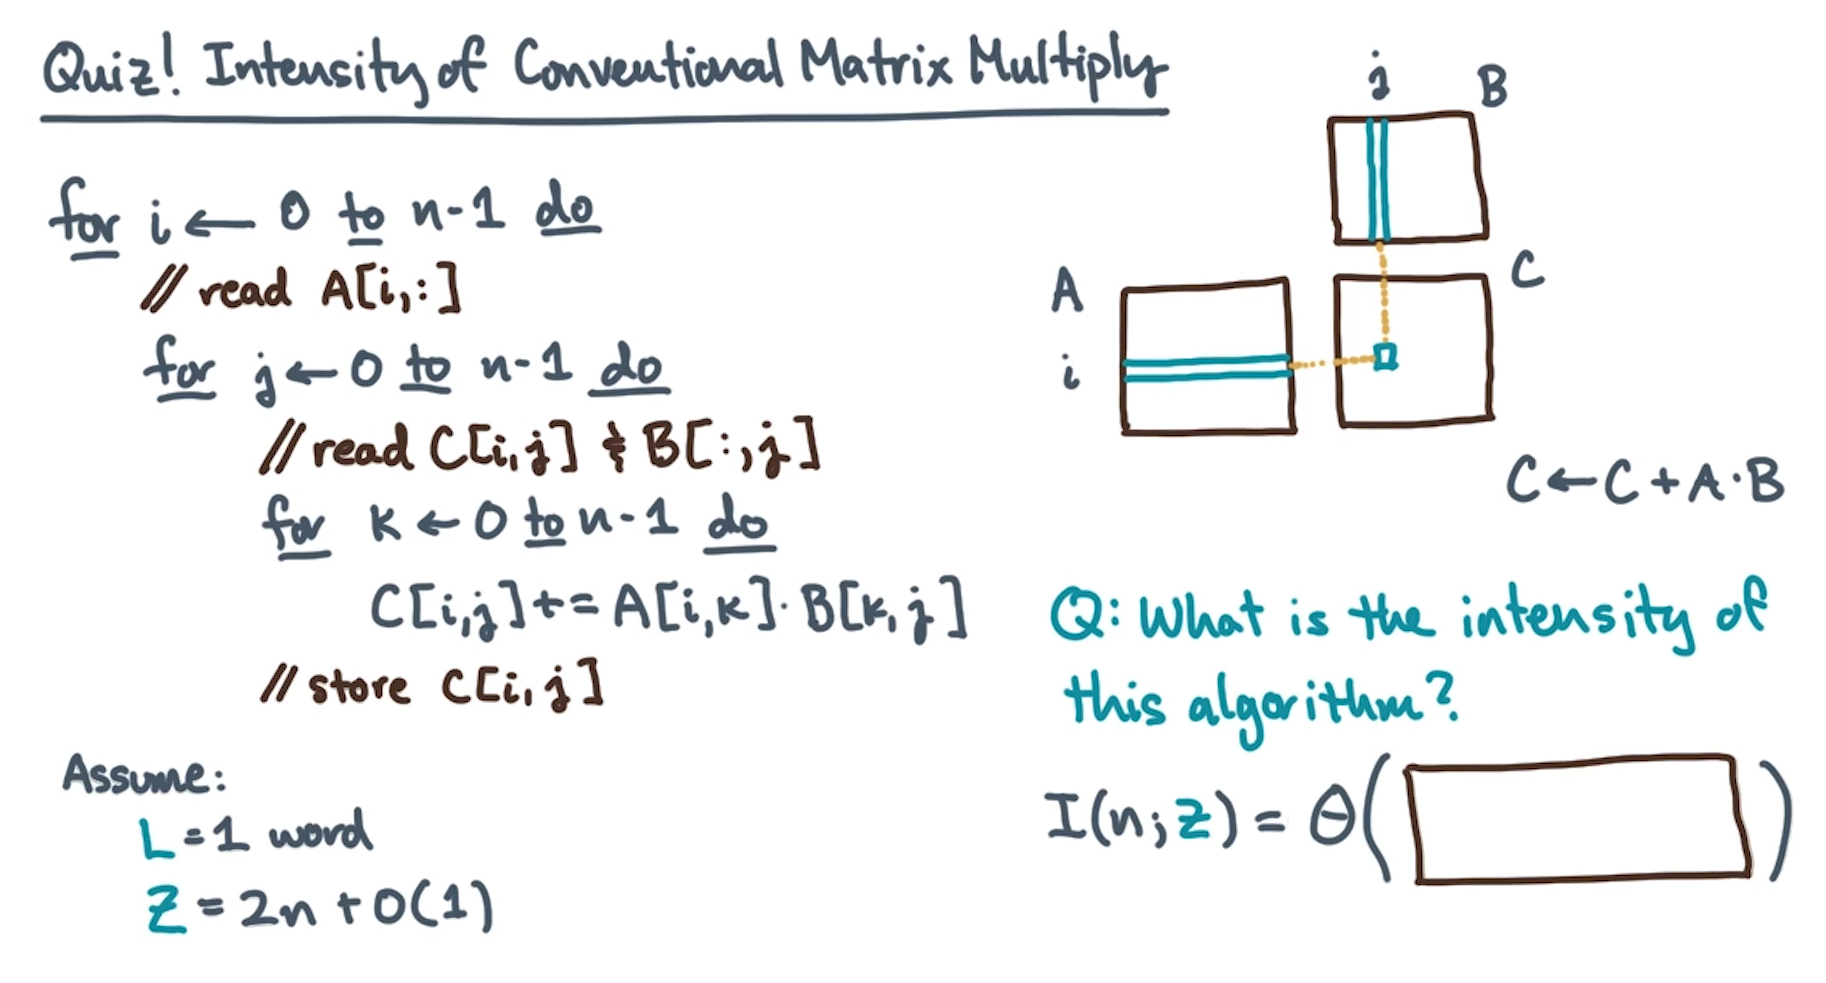 Quiz! Intensity of Conventional Matrix Multiply
for i ← 0 to n-1 do
// read A[i,:]
for j ← 0 to n-1 do
// read C[i,j] & B[:,j]
for k ← 0 to n-1 do
C[i,j] += A[i,k] · B[k,j]
// store C[i,j]
Assume:
L = 1 word
Z = 2n + O(1)
j B
A
C
i
C ← C + A · B
Q: What is the intensity of
this algorithm?
I(n; Z) = Θ( )